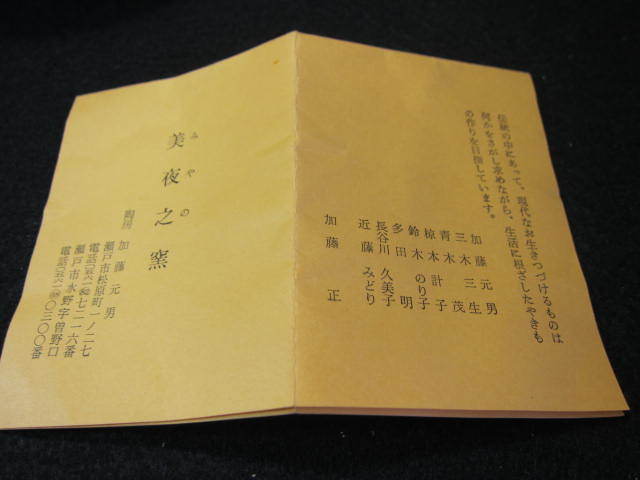 伝統の中にあって、現代なお生きつづけるものは
何かをさがし求めながら、生活に根ざしたやきも
の作りを目指しています。
加藤 元男
三木 三生
青木 茂
椋木 計子
鈴木 のり子
多田 明
長谷川 久美子
近藤 みどり
加藤 正
みやの
美夜之窯
陶房 加藤元男
瀬戸市松原町一ノ二七
電話 七二一六番
瀬戸市水野字曽野口
電話 〇三〇〇番